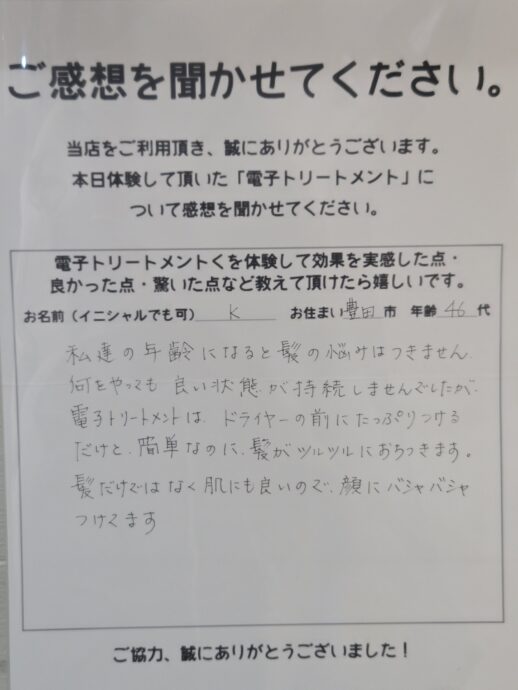 ご感想を聞かせてください。
当店をご利用頂き、誠にありがとうございます。
本日体験して頂いた「電子トリートメント」に
ついて感想を聞かせてください。
電子トリートメントくを体験して効果を実感した点・
良かった点・驚いた点など教えて頂けたら嬉しいです。
お名前（イニシャルでも可） K お住まい 豊田 市 年齢 46 代
私達の年齢になると髪の悩みはつきません
何をやっても良い状態が持続しませんでしたが、
電子トリートメントは、ドライヤーの前にたっぷりつける
だけと、簡単なのに、髪がツルツルにおちつきます。
髪だけではなく肌にも良いので、顔にバシャバシャ
つけてます
ご協力、誠にありがとうございました！